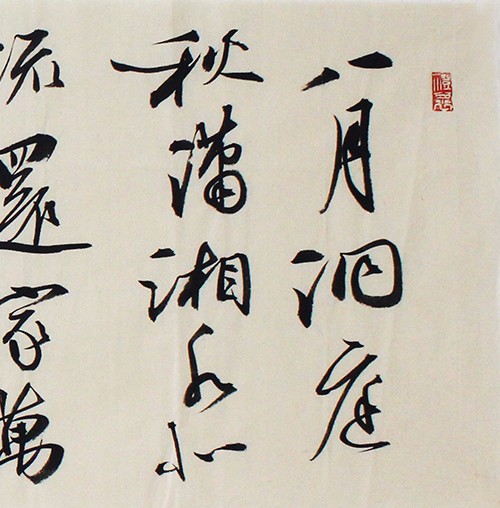 八月洞庭
秋潇湘水北
流還家萬